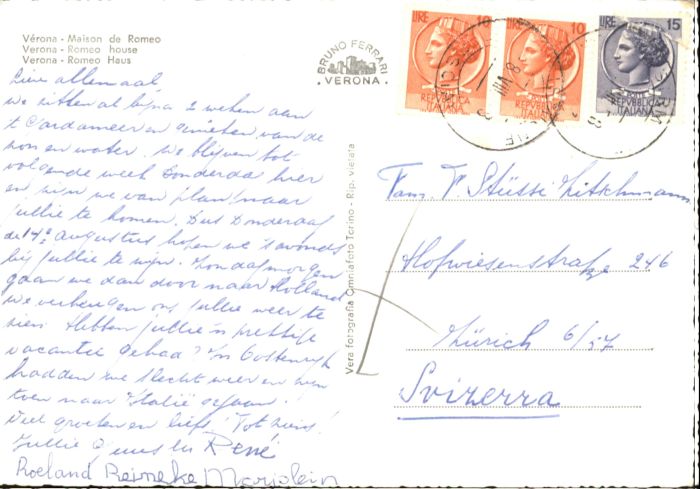 Vérona - Maison de Romeo
Verona - Romeo house
Verona - Romeo Haus
BRUNO FERRARI
· VERONA ·
LIRE 10
LIRE 10
LIRE 15
REPVBBLICA
ITALIANA
REPVBBLICA
ITALIANA
REPVBBLICA
ITALIANA
Lieve allemaal
we zitten al bijna 2 weken aan
't Gardameer en genieten van de
zon en water. We blijven tot
volgende week Donderdag hier
en zijn we van plan naar
jullie te komen. Dus Donderdag
de 14e augustus hopen we 's avonds
bij jullie te zijn. Zondagmorgen
gaan we dan door naar Holland
we verheugen ons jullie weer te
zien. Hebben jullie 'n prettige
vacantie gehad? In Oostenrijk
hadden we slecht weer en zijn
toen naar Italië gegaan.
Veel groeten en liefs! Tot ziens!
Jullie René
Roeland Reineke Marjolein
Vera fotografia Omniafoto Torino - Rip. vietata
Fam. Stüssi
Hofwiesenstraße 246
Zürich 6/57
Svizerra